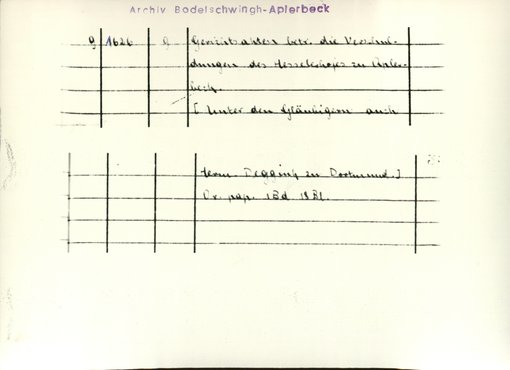 Archiv Bodelschwingh-Aplerbeck
9 1626 9 Gerichtsakten betr. die Verschul-
dungen des Hesselehofes zu Apler-
beck.
[ Unter den Gläubigern auch
Herm. Degging zu Dortmund.]
Or. pap. 1 Bd 18 Bl.